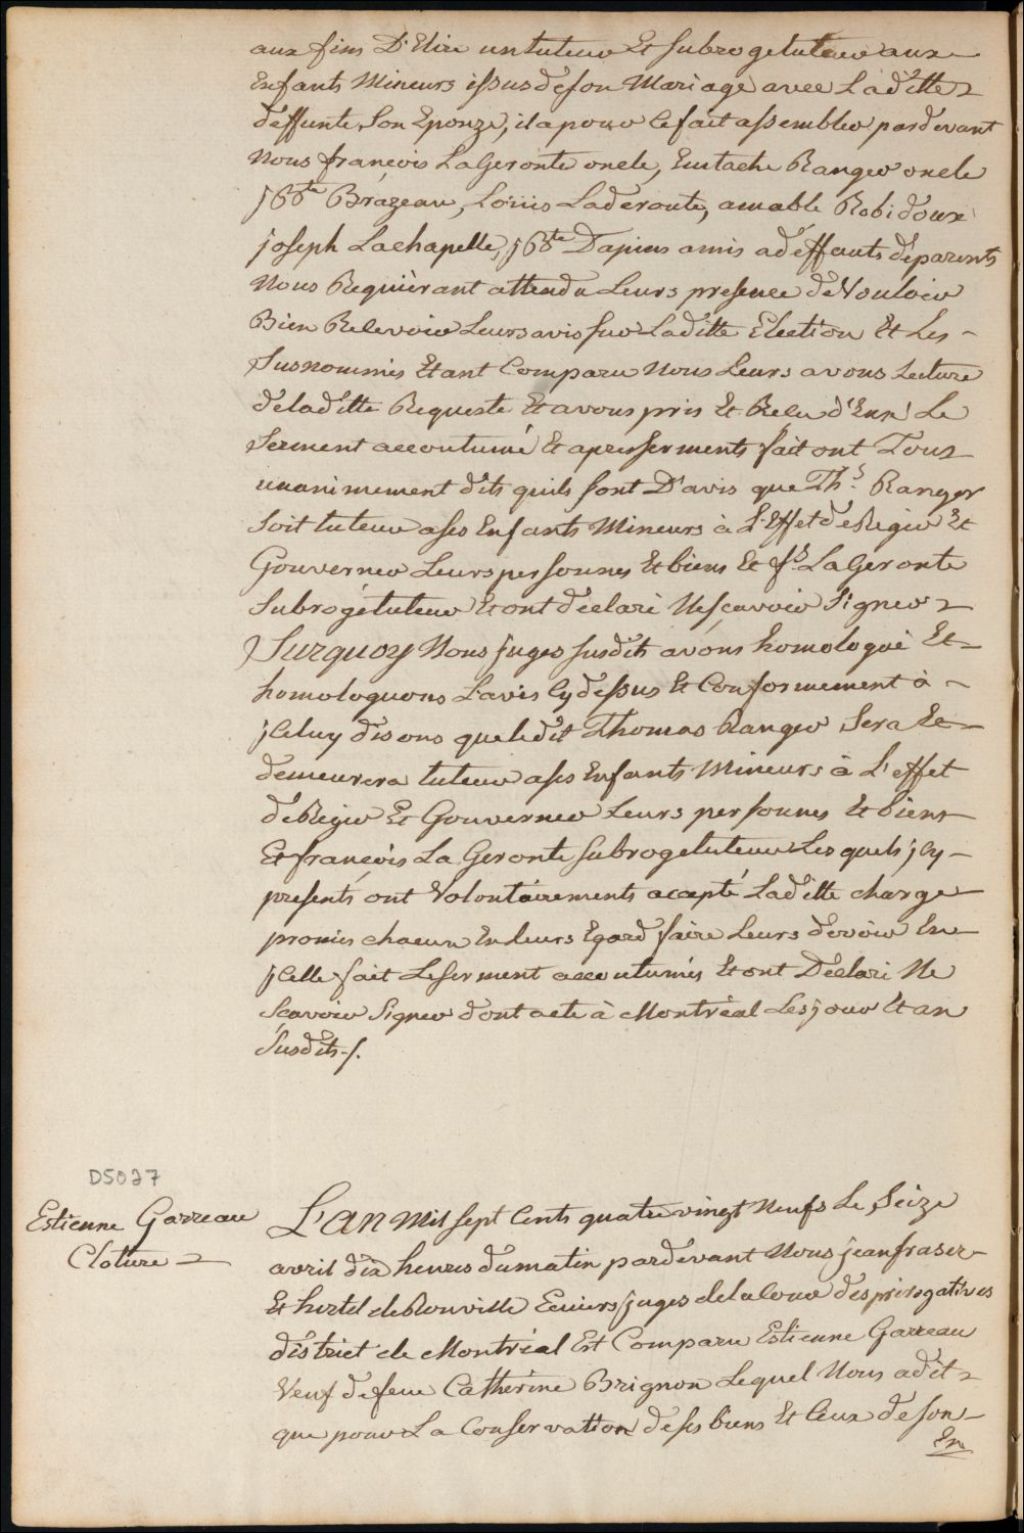 aux fins D'Elire untuteur Et subrogetuteur aux
Enfants Mineurs issus deson Mariage avec Laditte
deffunte Son Epouze, il a pour Cefait assembler pardevant
Nous francois LaGeronte oncle, Eustache Ranger oncle
jbte Brazeau, Loüis Laderoute, amable Robidoux
joseph Lachapelle, jbte Dapins amis adeffauts deparents
Nous Requièrant attendu Leurs presence deVouloir
Bien Relevoir Leurs avis sur Laditte Election Et Les
Susnommés Etant Comparu Nous Leurs avons Lecture
deladitte Requeste Et avons pris Et Recu d'Eux Le
Serment accoutumé Et apres serments fait ont Tous
unanimement dits quils sont D'avis que Ths. Ranger
soit tuteur ases Enfants Mineurs à L'Effet deRegir Et
Gouverner Leurs personnes Et biens Et fs. LaGeronte
Subrogétuteur Et ont declaré Nescavoir Signer
Surquoy Nous juges susdits avons homologué Et
homologuons L'avis Cy dessus Et Conformement à
jCeluy disons queledit Thomas Ranger Sera Et
demeurera tuteur ases Enfants Mineurs à L'effet
deRegir Et Gouverner Leurs personnes Et biens
Et francois La Geronte Subrogetuteur Les quels jCy
presents ont Volontairements accepté Laditte charge
promis chacun En leurs Egard faire Leurs devoir En
jCelle fait Leserment accoutumés Et ont Déclaré Ne
Scavoir Signer dont acte à Montréal Lesjour Et an
Susdits /.
D5027
Estienne Garreau
Cloture
L'AN Mil sept Cents quatrevingt Neufs Le Seize
avril dix heures dumatin pardevant Nous jean fraser
Et hertel deRouville Ecuiers juges delaCour desprerogatives
district de Montréal Est Comparu Estienne Garreau
Veuf defeue Catherine Brignon Lequel Nous adit
que pour La Conservation deses biens Et Ceux deson
En